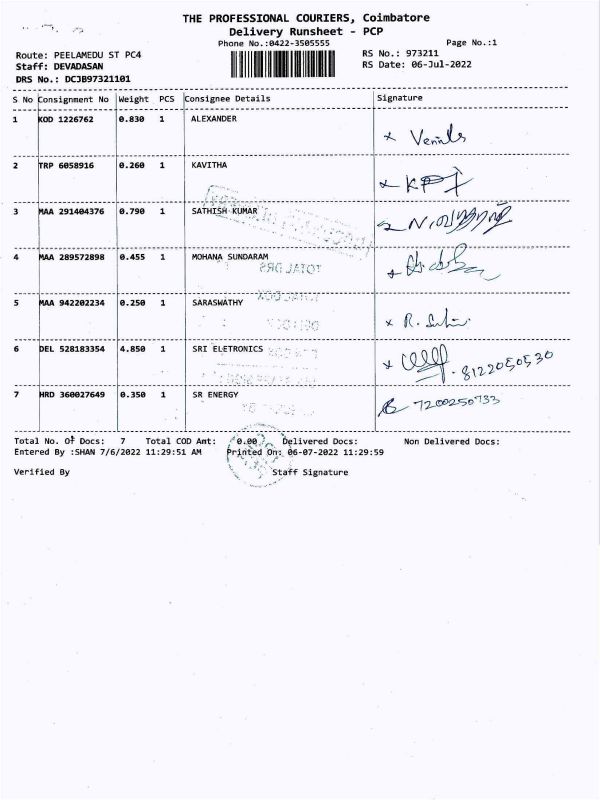 THE PROFESSIONAL COURIERS, Coimbatore
Delivery Runsheet - PCP
Phone No.:0422-3505555 Page No.:1
Route: PEELAMEDU ST PC4 RS No.: 973211
Staff: DEVADASAN RS Date: 06-Jul-2022
DRS No.: DCJB97321101
S No Consignment No Weight PCS Consignee Details Signature
1 KOD 1226762 0.830 1 ALEXANDER
2 TRP 6058916 0.260 1 KAVITHA
3 MAA 291404376 0.790 1 SATHISH KUMAR
4 MAA 289572898 0.455 1 MOHANA SUNDARAM
TOTAL DRS
5 MAA 942202234 0.250 1 SARASWATHY
6 DEL 528183354 4.850 1 SRI ELETRONICS 8122050530
7 HRD 360027649 0.350 1 SR ENERGY 7200250733
Total No. Of Docs: 7 Total COD Amt: 0.00 Delivered Docs: Non Delivered Docs:
Entered By :SHAN 7/6/2022 11:29:51 AM Printed On: 06-07-2022 11:29:59
Verified By Staff Signature